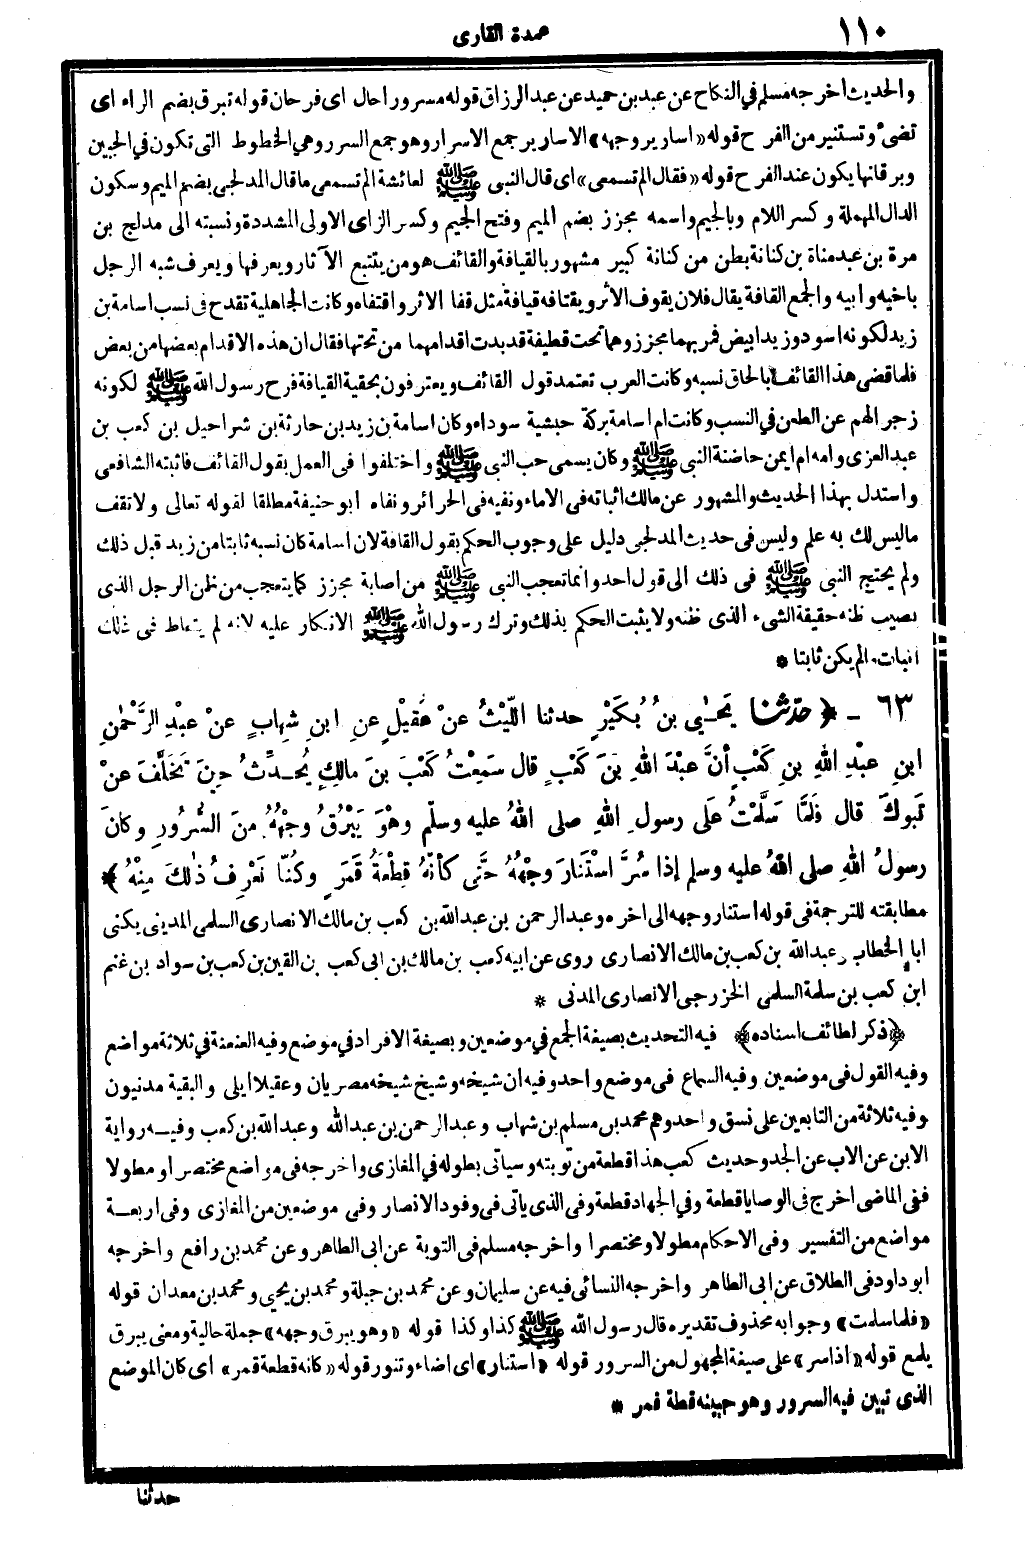 ١١٠
عمدة القارى
والحديث اخرجه مسلم في النكاح عن عبد بن حميد عن عبد الرزاق قوله مسرورا حال اى فرحان قوله تبرق بضم الراء اى
تضىء وتستنير من الفرح قوله «اسارير وجهه» الاسارير جمع الاسرار وهو جمع السرر وهى الخطوط التى تكون في الجبين
وبرقانها يكون عند الفرح قوله «فقال الم تسمعى» اى قال النبى ﷺ لعائشة الم تسمعى ما قال المدلجى بضم الميم وسكون
الدال المهملة وكسر اللام وبالجيم واسمه مجزز بضم الميم وفتح الجيم وكسر الزاى الاولى المشددة ونسبته الى مدلج بن
مرة بن عبد مناة بن كنانة بطن من كنانة كبير مشهور بالقيافة والقائف هو من يتتبع الآثار ويعرفها ويعرف شبه الرجل
باخيه وابيه والجمع القافة يقال فلان يقوف الأثر ويقتافه قيافة مثل قفا الاثر واقتفاه وكانت الجاهلية تقدح فى نسب اسامة بن
زيد لكونه اسود وزيد ابيض فمر بهما مجزز وهما تحت قطيفة قد بدت اقدامهما من تحتها فقال ان هذه الاقدام بعضها من بعض
فلما قضى هذا القائف بالحاق نسبه وكانت العرب تعتمد قول القائف ويعترفون بحقية القيافة فرح رسول الله ﷺ لكونه
زجرا لهم عن الطعن في النسب وكانت ام اسامة بركة حبشية سوداء وكان اسامة بن زيد بن حارثة بن شراحيل بن كعب بن
عبد العزى وامه ام ايمن حاضنة النبى ﷺ وكان يسمى حب النبى ﷺ واختلفوا فى العمل بقول القائف فاثبته الشافعى
واستدل بهذا الحديث والمشهور عن مالك اثباته فى الاماء ونفيه فى الحرائر ونفاه ابو حنيفة مطلقا لقوله تعالى ولا تقف
ما ليس لك به علم وليس فى حديث المدلجى دليل على وجوب الحكم بقول القافة لان اسامة كان نسبه ثابتا من زيد قبل ذلك
ولم يحتج النبى ﷺ فى ذلك الى قول احد وانما تعجب النبى ﷺ من اصابة مجزز كما يتعجب من ظن الرجل الذى
يصيب ظنه حقيقة الشىء الذى ظنه ولا يثبت الحكم بذلك وترك رسول الله ﷺ الانكار عليه لانه لم يتعاط فى ذلك
اثبات ما لم يكن ثابتا *
٦٣ ـ ﴿ حدّثنا يَحْيٰى بنُ بُكَيْرٍ حدثنا اللّيْثُ عنْ عُقَيْلٍ عنِ ابنِ شِهابٍ عنْ عبْدِ الرَّحْمٰنِ
ابنِ عبْدِ اللهِ بنِ كَعْبٍ أنَّ عبْدَ اللهِ بنَ كَعْبٍ قال سَمِعْتُ كَعْبَ بنَ مالكٍ يُحَدِّثُ حِينَ تَخَلَّفَ عنْ
تَبوكَ قال فلَمَّا سَلَّمْتُ عَلَى رسولِ اللهِ صلى اللهُ عليه وسلّم وهْوَ يَبْرُقُ وجْهُهُ منَ السُّرُورِ وكانَ
رسولُ اللهِ صلى اللهُ عليه وسلم إذا سُرَّ اسْتَنارَ وجْهُهُ حتَّى كأنَّهُ قِطْعَةُ قَمَرٍ وكُنّا نَعْرِفُ ذٰلكَ مِنْهُ ﴾ *
مطابقته للترجمة فى قوله استنار وجهه الى اخره وعبد الرحمن بن عبد الله بن كعب بن مالك الانصارى السلمى المدينى يكنى
ابا الخطاب وعبد الله بن كعب بن مالك الانصارى روى عن ابيه كعب بن مالك بن ابى كعب بن القين بن كعب بن سواد بن غنم
ابن كعب بن سلمة السلمى الخزرجى الانصارى المدنى *
﴿ذكر لطائف اسناده﴾ فيه التحديث بصيغة الجمع في موضعين وبصيغة الافراد فى موضع وفيه العنعنة في ثلاثة مواضع
وفيه القول فى موضعين وفيه السماع فى موضع واحد وفيه ان شيخه وشيخ شيخه مصريان وعقيلا ايلى والبقية مدنيون
وفيه ثلاثة من التابعين على نسق واحد وهم محمد بن مسلم بن شهاب وعبد الرحمن بن عبد الله وعبد الله بن كعب وفيه رواية
الابن عن الاب عن الجد وحديث كعب هذا قطعة من توبته وسياتى بطوله في المغازى واخرجه فى مواضع مختصرا ومطولا
ففى الماضى اخرج فى الوصايا قطعة وفي الجهاد قطعة وفى الذى ياتى فى وفود الانصار وفى موضعين من المغازى وفى اربعة
مواضع من التفسير وفى الاحكام مطولا ومختصرا واخرجه مسلم فى التوبة عن ابى الطاهر وعن محمد بن رافع واخرجه
ابو داود فى الطلاق عن ابى الطاهر واخرجه النسائى فيه عن سليمان وعن محمد بن جبلة ومحمد بن يحيى ومحمد بن معدان قوله
«فلما سلمت» وجوابه محذوف تقديره قال رسول الله ﷺ كذا وكذا قوله «وهو يبرق وجهه» جملة حالية ومعنى يبرق
يلمع قوله «اذا سر» على صيغة المجهول من السرور قوله «استنار» اى اضاء وتنور قوله «كانه قطعة قمر» اى كان الموضع
الذى تبين فيه السرور وهو جبينه قطة قمر *
حدثنا